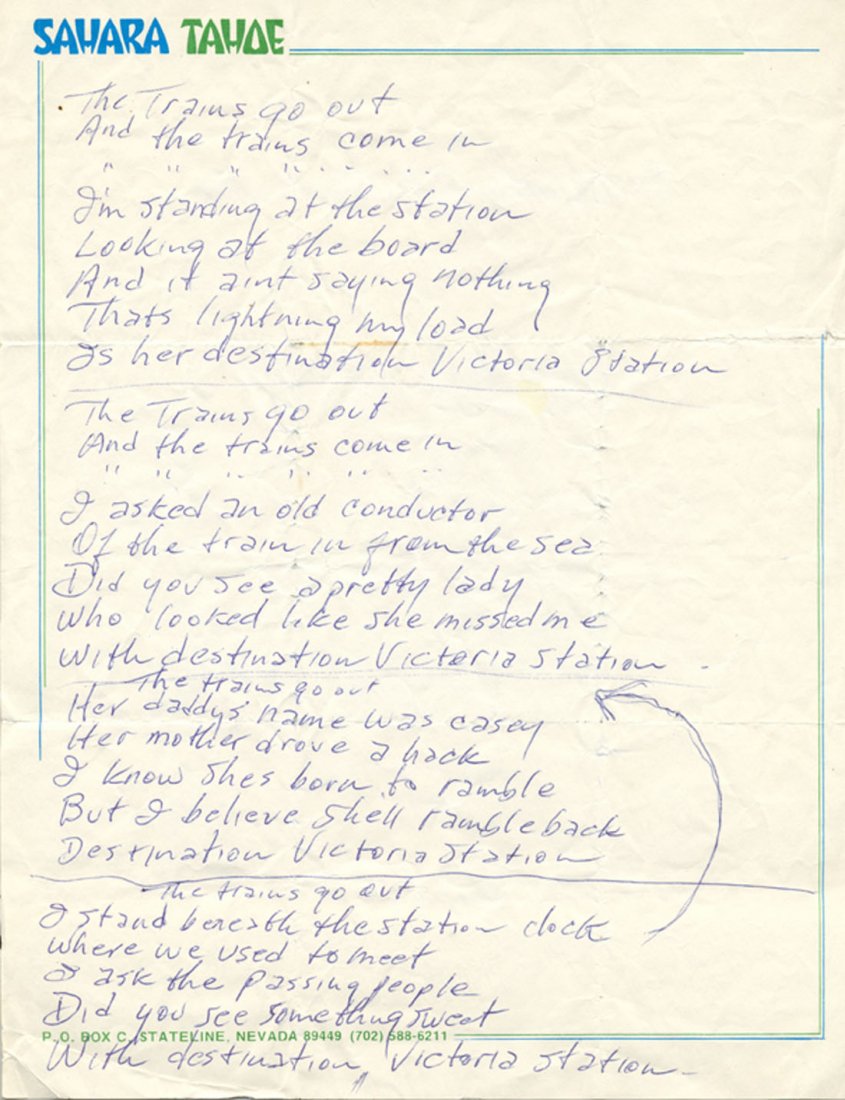 SAHARA TAHOE
The Trains go out
And the trains come in
" " " " " " "
I'm standing at the station
Looking at the board
And it aint saying nothing
Thats lightning my load
Is her destination Victoria Station
The Trains go out
And the trains come in
" " " " " "
I asked an old conductor
Of the train in from the sea
Did you see a pretty lady
Who looked like she missed me
With destination Victoria Station
The trains go out
Her daddys name was casey
Her mother drove a hack
I know shes born to ramble
But I believe shell ramble back
Destination Victoria Station
The trains go out
I stand beneath the station clock
Where we used to meet
I ask the passing people
Did you see something sweet
P.O. BOX C, STATELINE, NEVADA 89449 (702) 588-6211
With destination Victoria Station